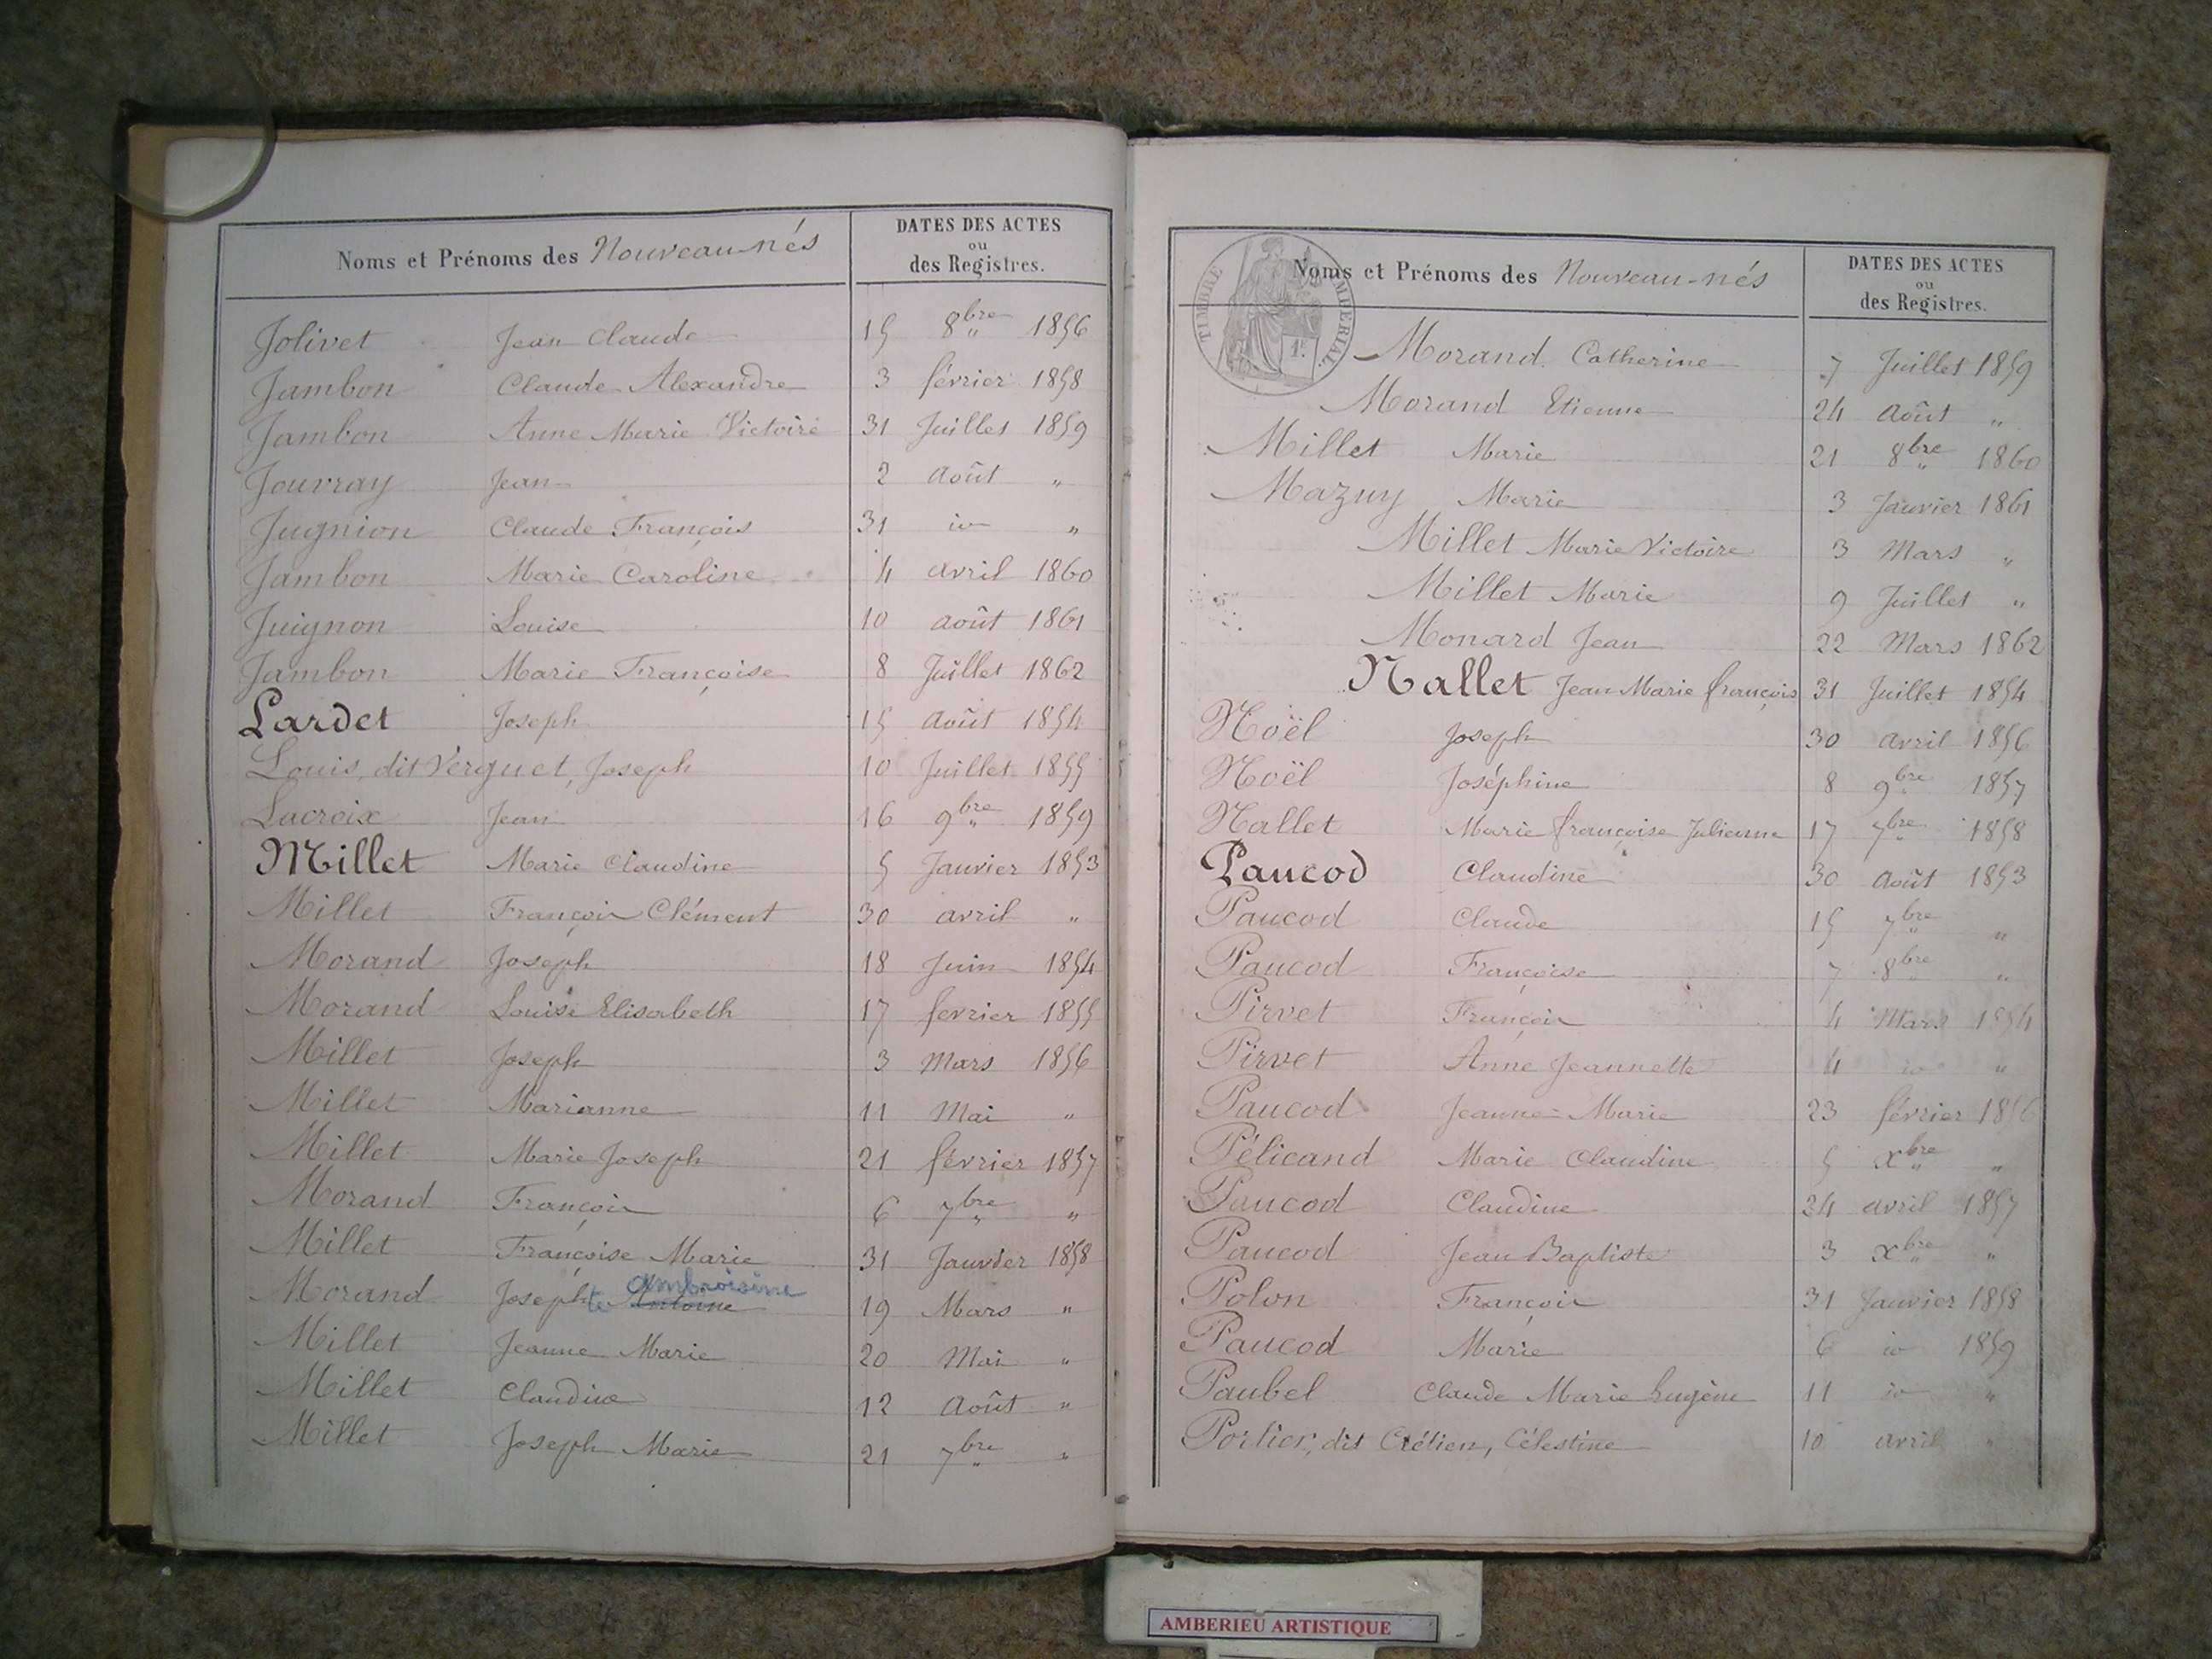 Noms et Prénoms des Nouveau-nés
DATES DES ACTES
ou
des Registres.
Jolivet Jean Claude 15 8bre " 1856
Jambon Claude Alexandre 3 février 1858
Jambon Anne Marie Victoire 31 Juillet 1859
Jouvray Jean 2 août "
Jugnion Claude François 31 io "
Jambon Marie Caroline 4 avril 1860
Juignon Louise 10 août 1861
Jambon Marie Françoise 8 Juillet 1862
Lardet Joseph 15 août 1854
Louis, dit Verguet, Joseph 10 Juillet 1855
Lacroix Jean 16 9bre " 1859
Millet Marie Claudine 5 Janvier 1853
Millet François Clément 30 avril "
Morand Joseph 18 Juin 1854
Morand Louise Elisabeth 17 fevrier 1855
Millet Joseph 3 Mars 1856
Millet Marianne 11 Mai "
Millet Marie Joseph 21 février 1857
Morand François 6 7bre " "
Millet Françoise Marie 31 Janvier 1858
Morand Josephte Antoine ambroisine 19 Mars "
Millet Jeanne Marie 20 Mai "
Millet Claudine 12 Août "
Millet Joseph Marie 21 7bre " "
TIMBRE IMPERIAL.
1F.
Noms et Prénoms des Nouveau-nés
DATES DES ACTES
ou
des Registres.
Morand Catherine 7 Juillet 1859
Morand Etienne 24 Août "
Millet Marie 21 8bre " 1860
Mazuy Marie 3 Janvier 1861
Millet Marie Victoire 3 Mars "
Millet Marie 9 Juillet "
Monard Jean 22 Mars 1862
Nallet Jean Marie françois 31 Juillet 1854
Noël Joseph 30 avril 1856
Noël Joséphine 8 9bre 1857
Nallet Marie françoise Julienne 17 7bre " 1858
Paucod Claudine 30 Août 1853
Paucod Claude 15 7bre " "
Paucod Françoise 7 8bre " "
Pirvet François 4 Mars 1854
Pirvet Anne Jeannette 4 io "
Paucod Jeanne-Marie 23 février 1856
Pélicand Marie Claudine 5 xbre " "
Paucod Claudine 24 avril 1857
Paucod Jean Baptiste 3 xbre " "
Polon François 31 Janvier 1858
Paucod Marie 6 io 1859
Paubel Claude Marie Eugène 11 io "
dit Crétien, Célestine 10 avril "
AMBERIEU ARTISTIQUE